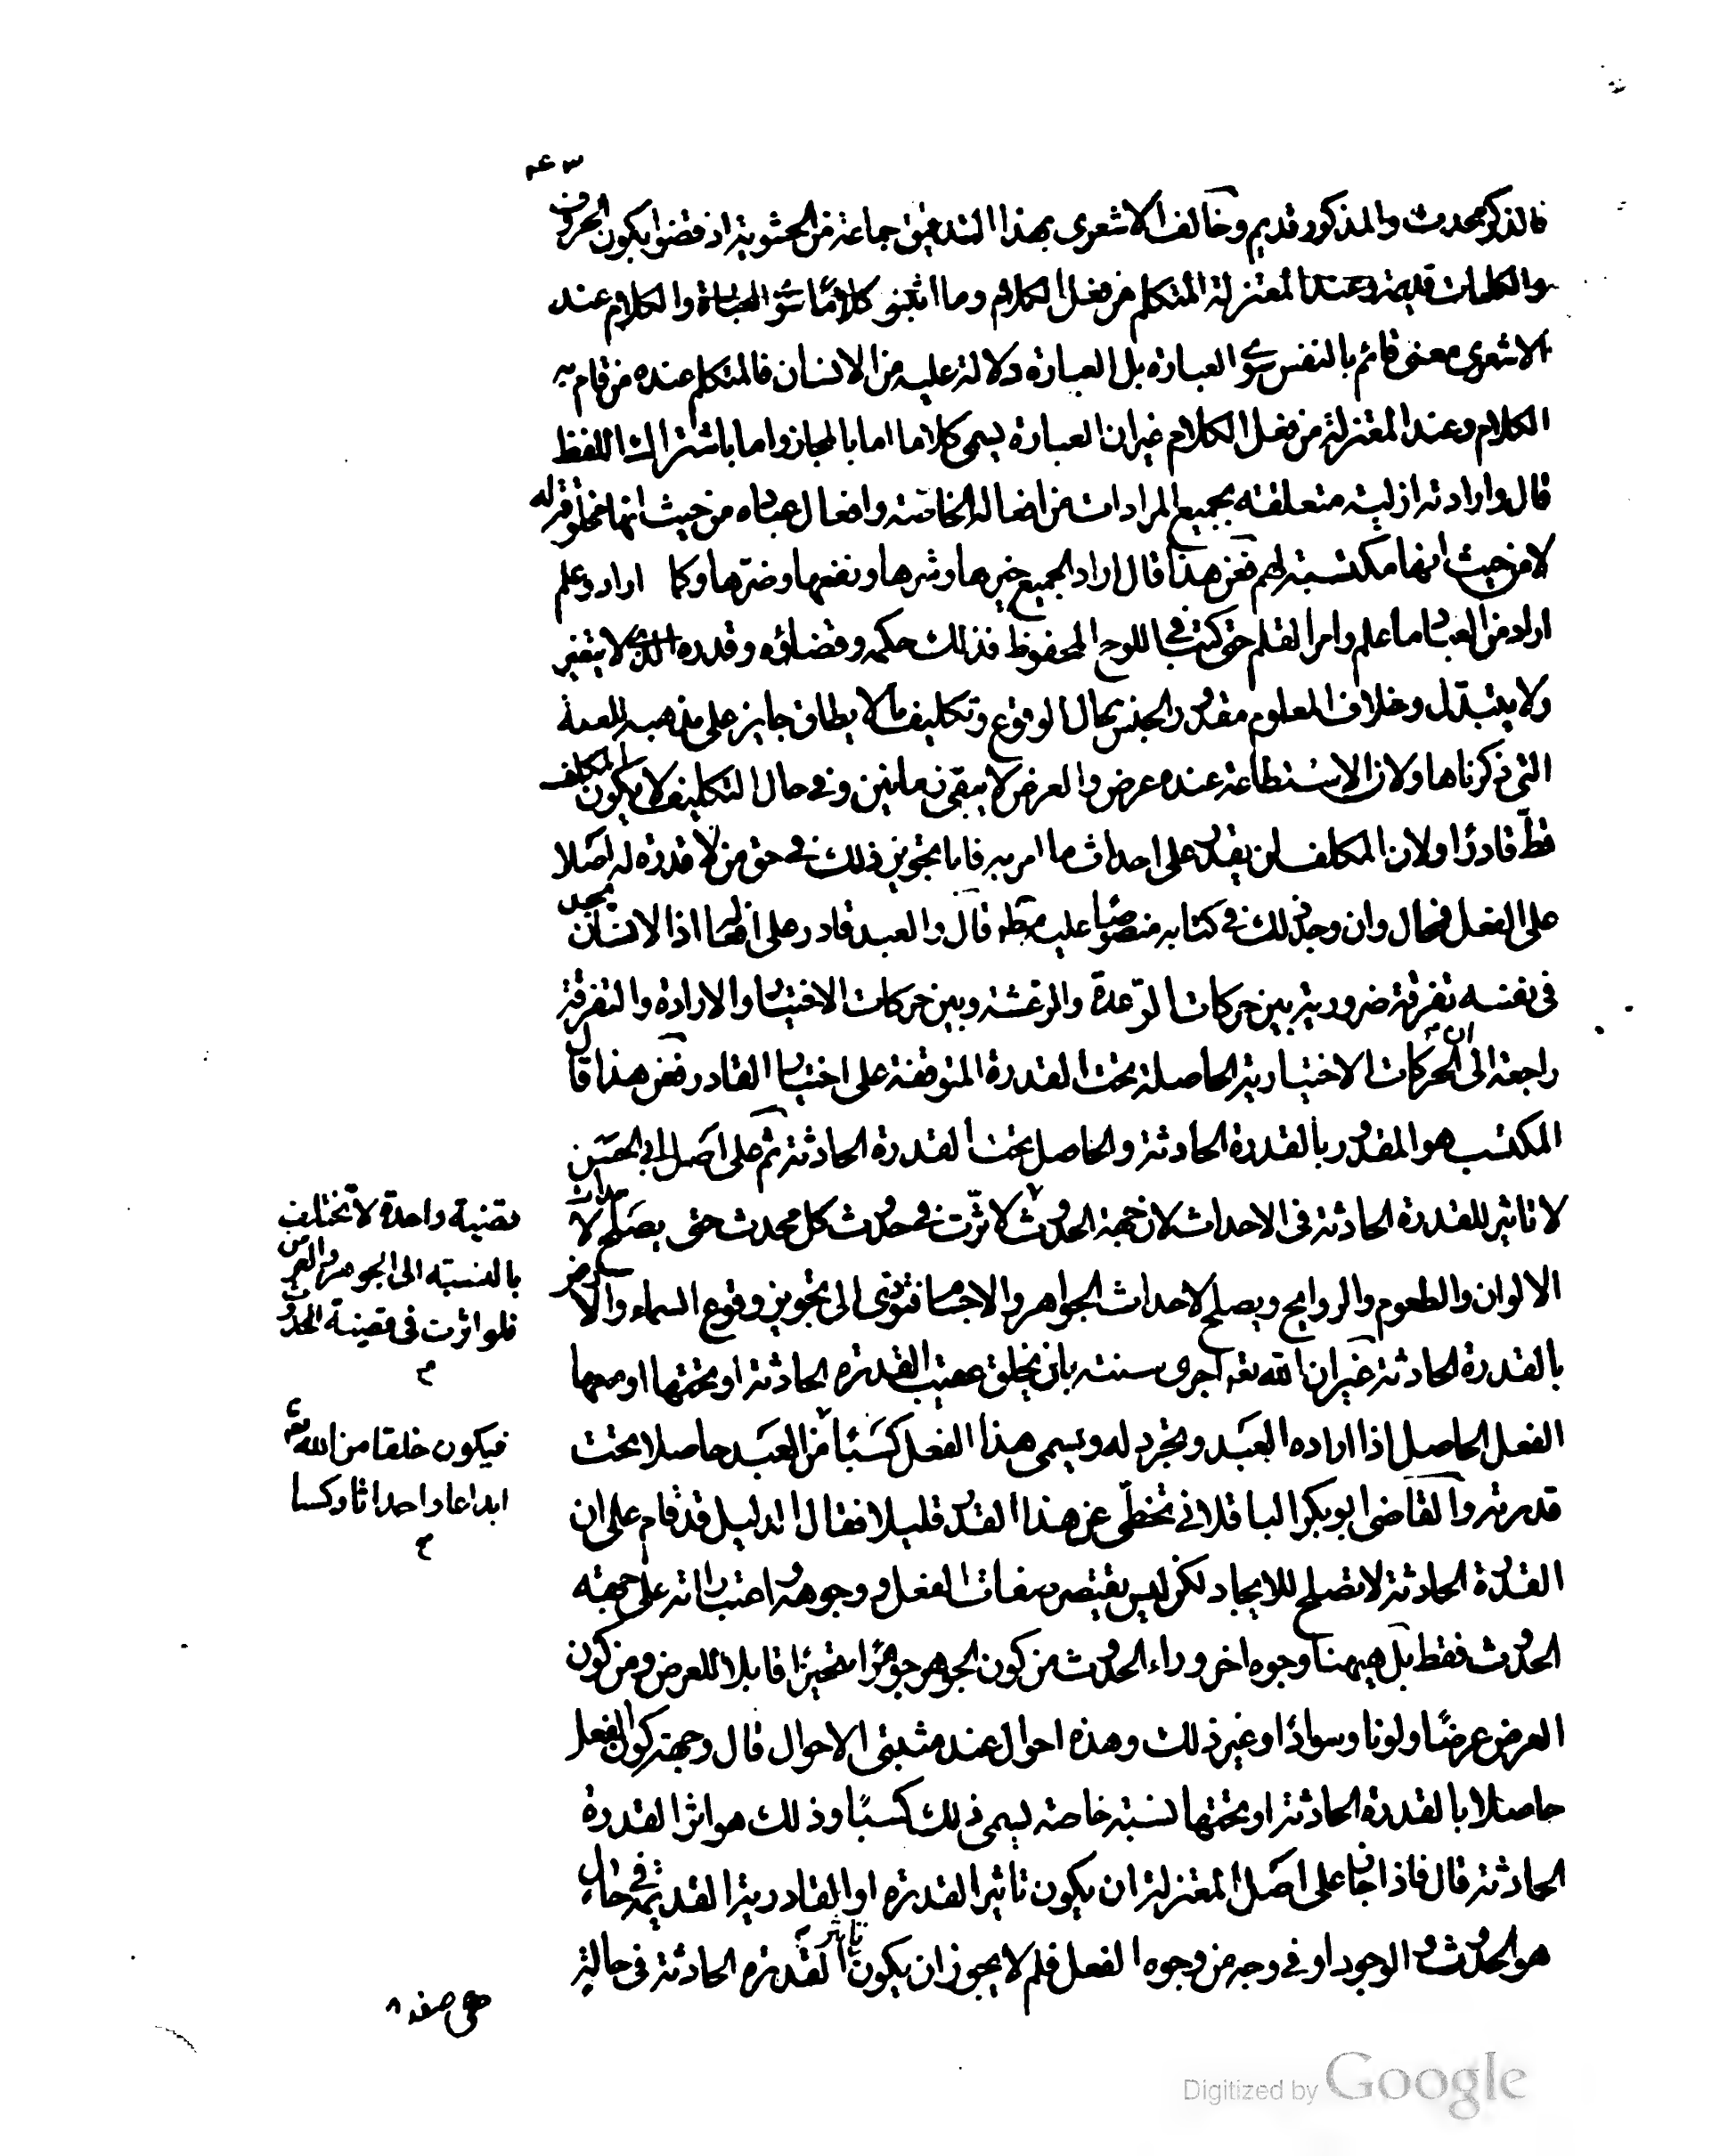 ٤٣
فالذكر محدث والمذكور قديم وخالف الاشعرى بهذا التدقيق جماعة من الحشوية اذ قضوا بكون الحروف
والكلمات قديمة وعند المعتزلة المتكلم من فعل الكلام وما اثبتو كلامًا سوى العبارة والكلام عند
الاشعرى معنى قائم بالنفس سوى العبارة بل العبارة دلالة عليه من الانسان فالمتكلم عنده من قام به
الكلام وعند المعتزلة من فعل الكلام غير ان العبارة يسمى كلاما اما بالمجاز واما باشتراك اللفظ
قال وارادته ازلية متعلقة بجميع المرادات من افعاله الخاصة وافعال عباده من حيث انها مخلوقة له
لا من حيث انها مكتسبة لهم فعن هذا قال اراد الجميع خيرها وشرها ونفعها وضرّها وكما اراد وعلم
اراد من العباد ما علم وامر القلم حتى كتب فى اللوح المحفوظ فذلك حكمه وقضاؤه وقدره الذى لا يتغير
ولا يتبدل وخلاف المعلوم مقدور الجنس محال الوقوع وتكليف ما لا يطاق جايز على مذهبه للعلة
التى ذكرناها ولان الاستطاعة عنده عرض والعرض لا يبقى زمانين وفى حال التكليف لا يكون المكلف
قطّ قادرًا ولان المكلف لن يقدر على احداث ما امر به فاما تجويز ذلك فى حق من لا قدرة له اصلا
على الفعل فمحال وان وجد ذلك فى كتابه منصوصا عليه قال والعبد قادر على افعاله اذ الانسان يجد
فى نفسه تفرقة ضرورية بين حركات الرّعدة والرعشة وبين حركات الاختيار والارادة والتفرقة
راجعة الى ان الحركات الاختيارية الحاصلة تحت القدرة المتوقفة على اختيار القادر فعن هذا قال
المكتسب هو المقدور بالقدرة الحادثة والحاصل تحت القدرة الحادثة ثم على اصل ابى الحسن
لا تاثير للقدرة الحادثة فى الاحداث لان جهة الحدوث لاثّرت فى حدوث كل محدث حتى يصلح لاحداث
الالوان والطعوم والروايح ويصلح لاحداث الجواهر والاجسام فتؤدى الى تجويز وقوع السماء والارض
بالقدرة الحادثة غير ان الله تعالى اجرى سنته بان يخلق عقيب القدرة الحادثة او تحتها او معها
الفعل الحاصل اذا اراده العبد وتجرد له ويسمى هذا الفعل كسبًا من العبد حاصلا تحت
قدرته والقاضى ابو بكر الباقلانى تخطّى عن هذا القدر قليلا فقال الدليل قد قام على ان
القدرة الحادثة لا تصلح للايجاد لكن ليس يقتصر صفات الفعل او وجوهه واعتباراته على جهته
الحدوث فقط بل ههنا وجوه اخر وراء الحدوث من كون الجوهر جوهرًا متحيزًا قابلا للعرض ومن كون
العرض عرضًا ولونا وسوادًا وغير ذلك وهذه احوال عند مثبتى الاحوال قال وجهة كون الفعل
حاصلا بالقدرة الحادثة او تحتها نسبة خاصة يسمى ذلك كسبًا وذلك هو اثر القدرة
الحادثة قال فاذا جاز على اصل المعتزلة ان يكون تاثير القدرة او القادرية القديمة فى حال
هو الحدوث والوجود او فى وجه من وجوه الفعل فلم لا يجوز ان يكون تاثير القدرة الحادثة فى حالة
هى صفة
قضية واحدة لا تختلف
بالنسبة الى الجوهر والعرض
فلو اثرت فى قضية الحدوث
فيكون خلقا من الله تعالى
ابداعا واحداثا وكسبا
Digitized by Google